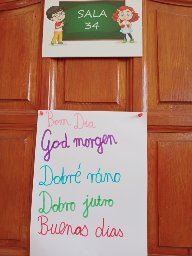 SALA
34
Bom Dia
God morgen
Dobré ráno
Dobro jutro
Buenas dias